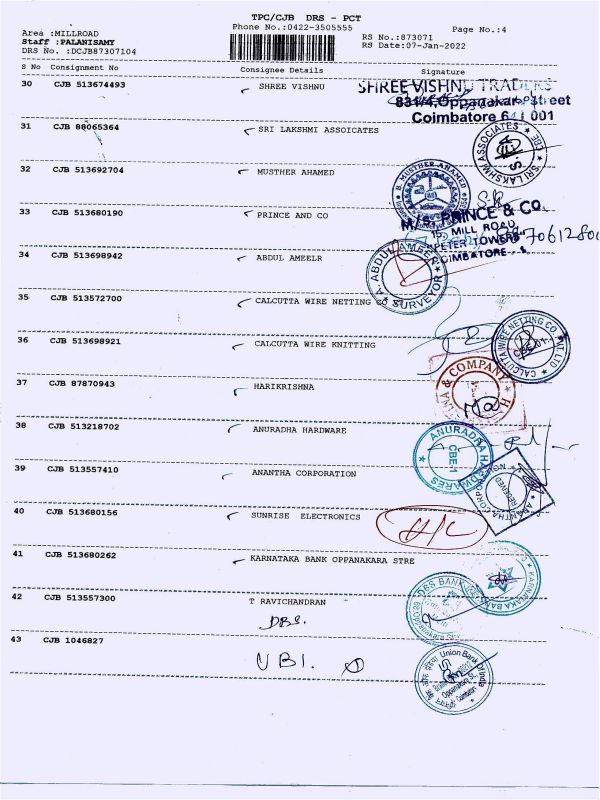 TPC/CJB DRS - PCT
Area :MILLROAD
Phone No.:0422-3505555
Page No.:4
Staff :PALANISAMY
RS No.:873071
DRS No. :DCJB87307104
RS Date:07-Jan-2022
S No Consignment No Consignee Details Signature
30 CJB 513674493 SHREE VISHNU
SHREE VISHNU TRADERS
831/4, Oppanakar Street
Coimbatore 641 001
31 CJB 88065364 SRI LAKSHMI ASSOICATES
SRI LAKSHMI ASSOCIATES CBE
32 CJB 513692704 MUSTHER AHAMED
B. MUSTHER AHAMED
33 CJB 513680190 PRINCE AND CO
M/s. PRINCE & Co.
15, MILL ROAD,
"PETER TOWERS"
COIMBATORE
34 CJB 513698942 ABDUL AMEELR
A. ABDUL AMEER SURVEYOR
35 CJB 513572700 CALCUTTA WIRE NETTING CO
36 CJB 513698921 CALCUTTA WIRE KNITTING
CALCUTTA WIRE NETTING CO. PVT LTD
37 CJB 87870943 HARIKRISHNA
& COMPANY H
38 CJB 513218702 ANURADHA HARDWARE
ANURADHA HARDWARES
CBE-1
39 CJB 513557410 ANANTHA CORPORATION
ANANTHA CORPORATION
RECEIVED
40 CJB 513680156 SUNRISE ELECTRONICS
41 CJB 513680262 KARNATAKA BANK OPPANAKARA STRE
KARNATAKA BANK
42 CJB 513557300 T RAVICHANDRAN
DBS.
DBS BANK
43 CJB 1046827
UBI.
Union Bank Of India